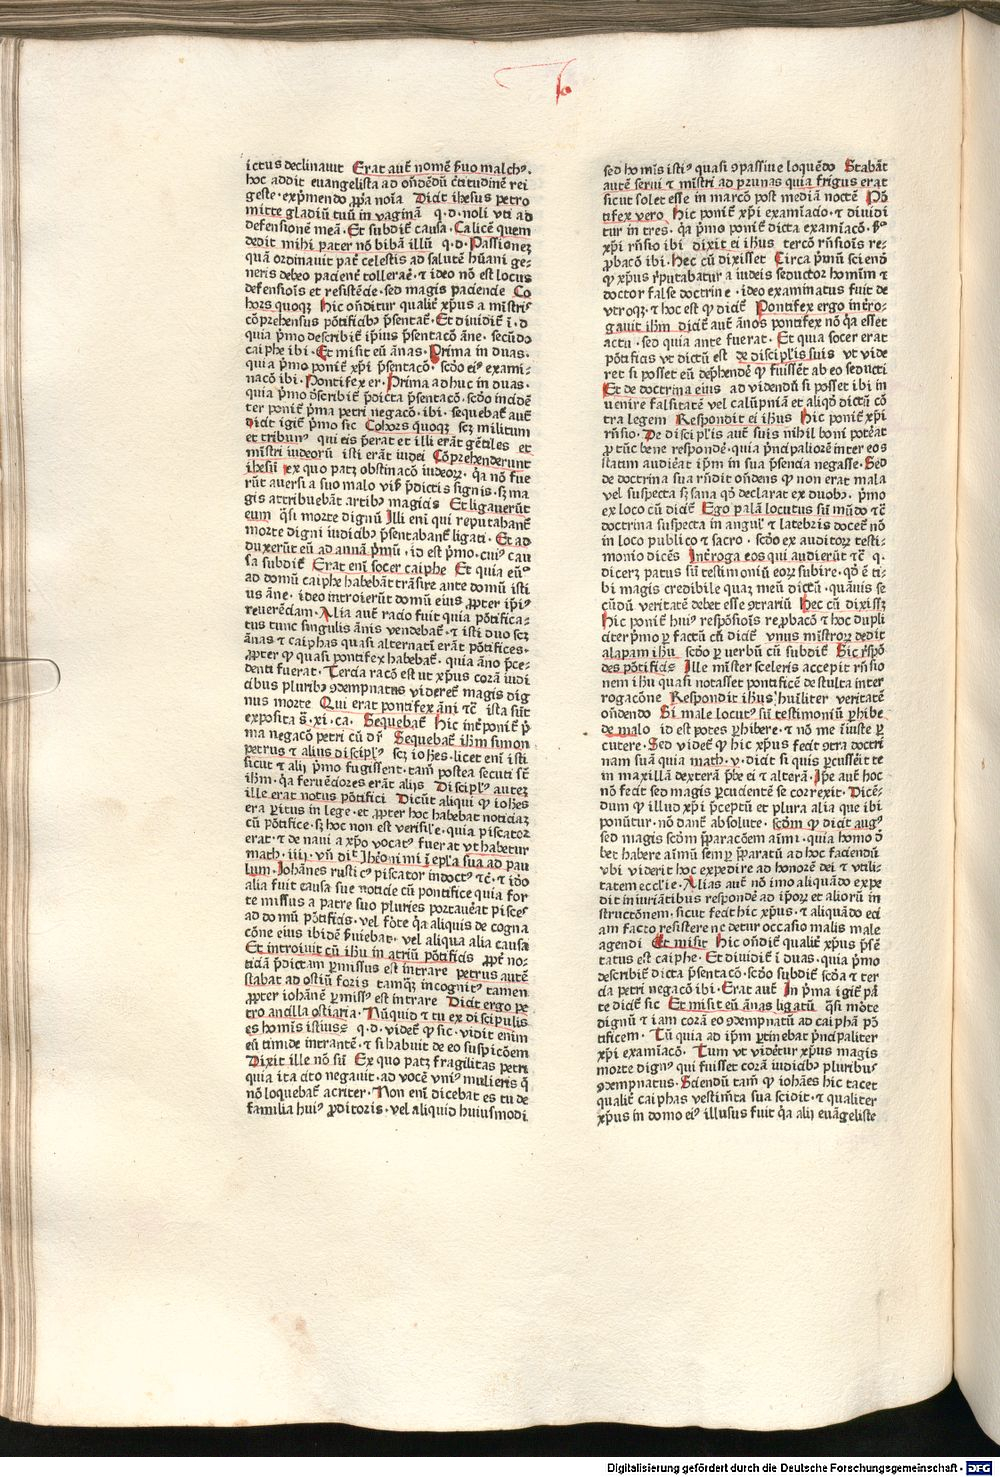 ictus declinavit Erat aut̄ nomē ẜuo malchꝰ.
hoc addit euangelista ad oñdēdū c̄titudinē rei
geste · exp̄mendo ꝓp̄a noīa Dicit ihesus petro
mitte gladiū tuū in vaginā q. d. noli vti ad
defensionē meā · Et subdit̄ causa · Calicē quem
dedit mihi pater nō bibā illū q. d. Passionez
quā ordinauit pat̄ celestis ad salutē hūani ge-
neris debeo pacient̄ tollerare · ⁊ ideo nō est locus
defensiōis et resistēcie · sed magis paciencie Co
hors quoqꝫ Hic oñditur qualit̄ xp̄us a mīstris
cōprehensus pōtificibꝰ p̄sentat̄ · Et diuidit̄ ī · d
quia p̄mo describit̄ ip̄ius p̄sentacō āne · secūdo
caiphe ibi · Et misit eū ānas · Prima in duas.
quia p̄mo ponit̄ xp̄i p̄sentacō · scd̄o eiꝰ exami-
nacō ibi · Pontifex er · Prima adhuc in duas.
quia p̄mo d̄scribit̄ p̄dicta p̄sentacō · scd̄o incidē
ter ponit̄ p̄ma petri negacō · ibi · sequebat̄ aut̄
Dicit igit̄ p̄mo sic Cohors quoqꝫ scꝫ militum
et tribunꝰ qui eis p̄erat et illi erāt gētiles et
mīstri iudeorū isti erāt iudei Cōprehenderunt
ihesū ex quo patꝫ obstinacō iudeoꝝ · qͣ nō fue
rūt auersi a suo malo visꝭ p̄dictis signis · sꝫ ma
gis attribuebāt artibꝰ magicis Et ligauerūt
eum qͣsi morte dignū Illi enī qui reputabant̄
morte digni iudicibꝰ p̄sentabant̄ ligati · Et ad
duxerūt eū ad annā p̄mū · id est p̄mo · cuiꝰ cau
sa subdit̄ Erat enī socer caiphe Et quia eūꝰ
ad domū caiphe habebāt trāsire ante domū isti
us āne · ideo introierūt domū eius ꝓpter ip̄iꝰ
reuerēciam · Alia aut̄ racio fuit quia pōtifica-
tus tunc singulis ānis vendebat̄ · ⁊ isti duo scꝫ
ānas ⁊ caiphas quasi alternati erāt pōtifices ·
ꝓpter qꝫ quasi pontifex habebat̄ · quia āno p̄ce-
denti fuerat · Tercia racō est ut xp̄us corā iudi
cibus pluribꝰ ꝯdempnatus videret̄ magis dig
nus morte Qui erat pontifex āni ⁊c̄ ista sūt
exposita s̄ · xi · ca · Sequebat̄ Hic int̄ponit̄ p̄
ma negacō petri cū dr̄ Sequebat̄ ihm̄ simon
petrus ⁊ alius discipl̄ꝰ scꝫ ioh̄es · licet enī isti
sicut ⁊ alij p̄mo fugissent · tam̄ postea secuti sūt
ihm̄ · qͣ feruēciores erāt alijs Discipl̄ꝰ autez
ille erat notus pōtifici Dicūt aliqui qꝫ ioh̄es
era peritus in lege · et ꝓpter hoc habebat noticiaꝫ
cū pōtifice · sꝫ hoc non est verisil̄e · quia piscator
erat · ⁊ de naui a xp̄o vocatꝰ fuerat vt habetur
math · iiij · vñ dit̄ Jheōnimꝰ ī epl̄a sua ad pau
lum · Johānes rusticꝰ piscator indoctꝰ ⁊c̄ · ⁊ idō
alia fuit causa sue noticie cū pontifice quia for
te missus a patre suo pluries portauerat pisces
ad domū pōtificis · vel fōte qͣ aliquis de cogna
cōne eius ibidē p̄uiebat · vel aliqua alia causa
Et introiuit cū ihū in atriū pōtificis ꝓpt̄ no-
ticiā p̄dictam permissus est intrare petrus autē
stabat ad ostiū foris tamqꝫ incognitꝰ tamen
ꝓpter iohānē permissꝰ est intrare Dicit ergo pe
tro ancilla ostiaria · Nūquid ⁊ tu ex discipulis
es homīs istius q. d. videt̄ qꝫ sic · vidit enim
eū timide intrantē · ⁊ sꝭ habuit de eo suspicōem
Dixit ille nō sū Ex quo patꝫ fragilitas petri
quia ita cito negauit · ad vocē vniꝰ mulieris q̄
nō loquebat̄ acriter · Non enī dicebat es tu de
familia huiꝰ ꝓditoris · vel aliquid huiusmodi
sed homīs istiꝰ quasi ꝯpassiue loquēdo Stabāt
autē serui ⁊ mīstri ad prunas quia frigus erat
sicut solet esse in marcō post mediā noctē Pō
tifex vero · Hic ponit̄ xp̄i examīacio · ⁊ diuidi
tur in tres · qͣ p̄mo ponit̄ dicta examīacō · sꝰ
xp̄i rñsio ibi dixit ei ih̄us tercō rñsiōis re-
ꝓbacō ibi · Hec cū dixisset Circa p̄mū sciend̄
qꝫ xp̄us r̄putabatur a iudeis seductor homīm ⁊
doctor false doctrine · ideo examinatus fuit de
vtroqꝫ · ⁊ hoc est qꝫ dicit̄ Pontifex ergo int̄ro-
gauit ihm̄ dicit̄ aut̄ ānos pontifex nō qͣ esset
actu · sed quia ante fuerat · Et quia socer erat
pōtificis vt dictū est de discipl̄is suis vt vide
ret si posset eū dep̄hendē qꝫ fuissēt ab eo seducti
Et de doctrina eius ad videndū si posset ibi in
uenire falsitatē vel calūpniā et aliqͥd dictū cō
tra legem Respondit ei ih̄us Hic ponit̄ xp̄i
rñsio · De discipl̄is aut̄ suis nihil boni poterat
ꝓ tūc bene respondē · quia p̄ncipaliorē inter eos
statim audierat ip̄m in sua p̄sencia negasse · Sed
de doctrina sua rñdit oñdens qꝫ non erat mala
vel suspecta sꝫ sana qd̄ declarat ex duobꝰ · p̄mo
ex loco cū dicit̄ Ego palā locutus sū mūdo ⁊c̄
doctrina suspecta in angulꝭ ⁊ latebris docet̄ nō
in loco publico ⁊ sacro · scd̄o ex auditoꝝ testi-
monio dicēs Int̄roga eos qui audierūt ⁊c̄ q.
diceꝝ patus sū testimoniū eoꝝ subire · qd̄ ē ti-
bi magis credibile quaꝫ meū dictū · quāuis se
cūdū veritatē debet esse ꝯtrariū Hec cū dixissꝫ
Hic ponit̄ huiꝰ respōsiōis reꝓbacō ⁊ hoc dupli
citer p̄mo per factū cū dicit̄ vnus mīstroꝝ dedit
alapam ihū scd̄o per verbū cū subdit̄ Sic r̄spō
des pōtificis Ille mīster sceleris accepit rñsio
nem ihū quasi notasset pontificē de stulta inter
rogacōne Respondit ih̄us huīliter veritatē
oñdendo Si male locutꝰ sū testimoniū perhibe
de malo id est potes perhibere · ⁊ nō me īiuste per
cutere · Sed videt̄ qꝫ hic xp̄us fecit ꝯtra doctri
nam suā quia math · v · dicit si quis percusserit te
in maxillā dexterā p̄be ei ⁊ alterā · Ip̄e aut̄ hoc
nō fecit sed magis percucientē se correxit · Dicē-
dum qꝫ illud xp̄i p̄ceptū et plura alia que ibi
ponūtur · nō dant̄ absolute · scd̄m qꝫ dicit augꝰ
sed magis scd̄m p̄paracōem aīmi · quia homo d̄
bet habere aīmū semper p̄paratū ad hoc faciendū
vbi viderit hoc expedire ad honorē dei ⁊ vtili-
tatem eccl̄ie · Alias aut̄ nō imo aliquādo expe
dit iniuriātibus respondē ad ip̄oꝝ et aliorū in
structōnem · sicut fecit hic xp̄us · ⁊ aliquādo eci
am facto resistere ne detur occasio malis male
agendi Et misit Hic oñdit̄ qualit̄ xp̄us p̄sē
tatus est caiphe · Et diuidit̄ ī duas · quia p̄mo
describit̄ dicta p̄sentacō · scd̄o subdit̄ scd̄a ⁊ ter
cia petri negacō ibi · Erat aut̄ In p̄ma igit̄ pͣ
te dicit̄ sic Et misit eū ānas ligatū qͣsi morte
dignū ⁊ iam corā eo ꝯdempnatū ad caiphā pō
tificem · Tū quia ad ip̄m pertinebat p̄ncipaliter
xp̄i examīacō · Tum vt videretur xp̄us magis
morte dignꝰ qui fuisset corā iudicibꝰ pluribus
ꝯdempnatus · Sciendū tam̄ qꝫ iohānes hic tacet
qualit̄ caiphas vestim̄ta sua scidit · ⁊ qualiter
xp̄us in domo eiꝰ illusus fuit qͣ alij euāgeliste
Digitalisierung gefördert durch die Deutsche Forschungsgemeinschaft - DFG